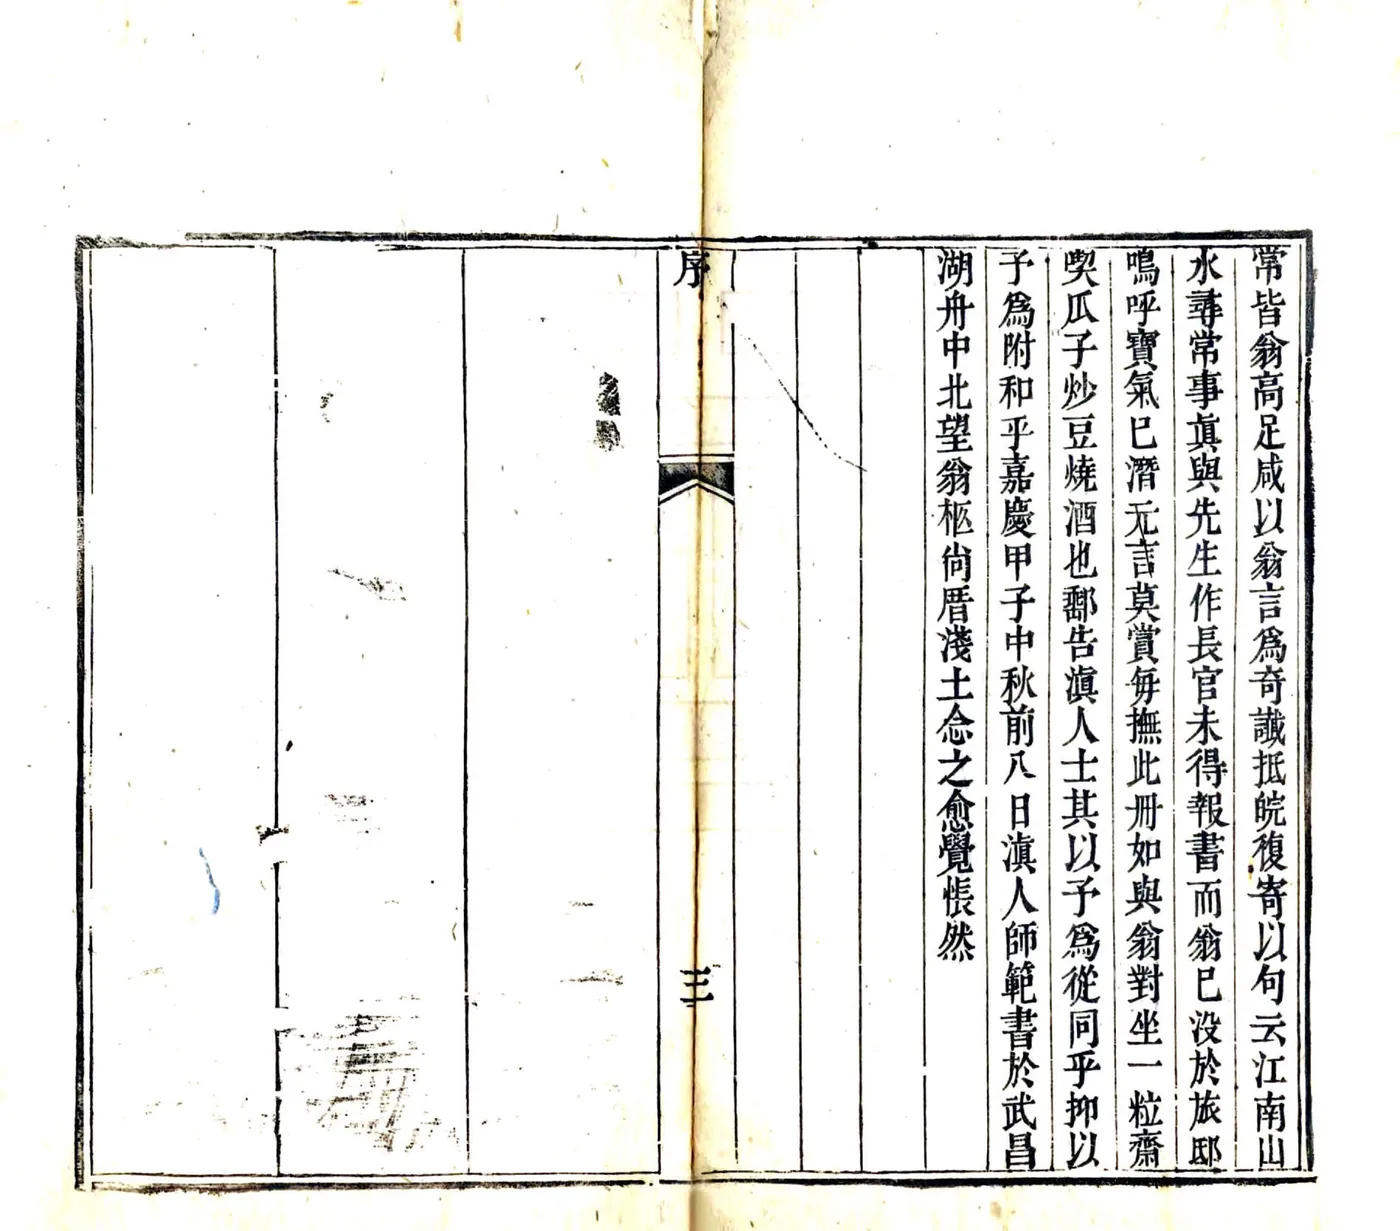 常皆翁高足咸以翁言爲奇讖抵皖復寄以句云江南山
水尋常事眞與先生作長官未得報書而翁已没於旅邸
嗚呼寶氣已潛无言莫賞毎撫此冊如與翁對坐一粒齋
喫瓜子炒豆燒酒也鄩告滇人士其以予爲從同乎抑以
子爲附和乎嘉慶甲子中秋前八日滇人師範書於武昌
湖舟中北望翁柩尙厝淺土念之愈覺悵然
序
三